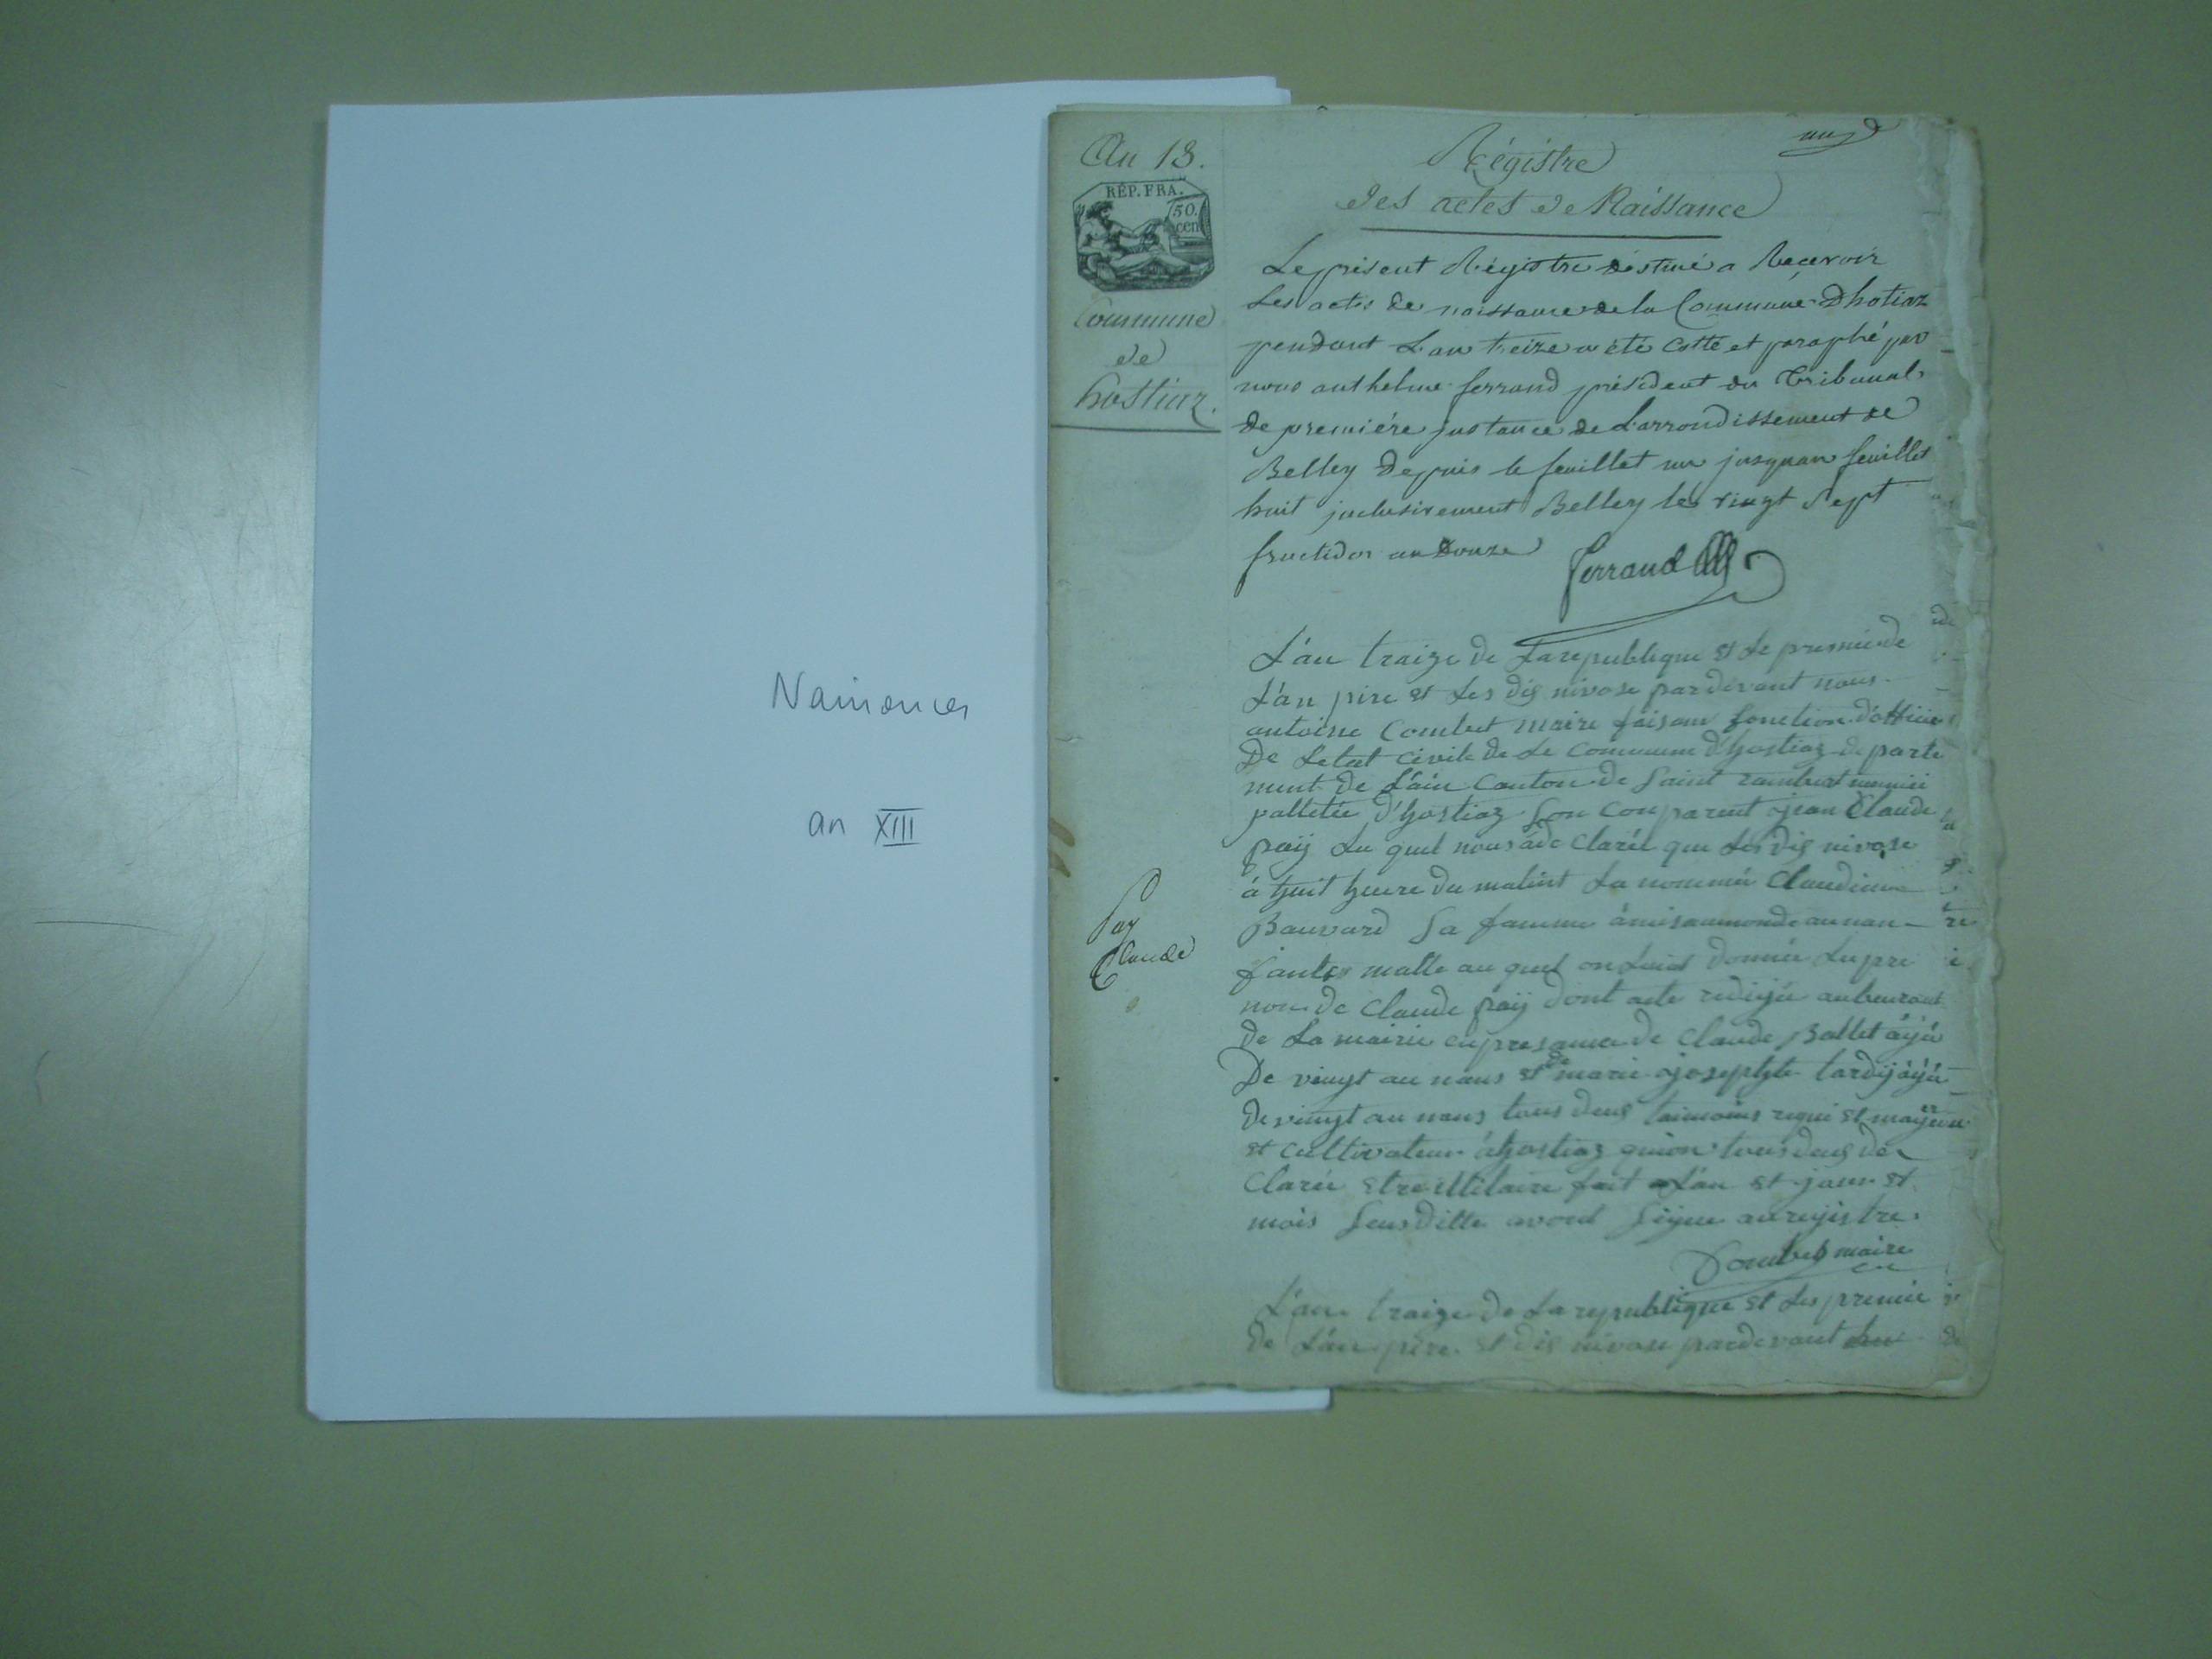 Naissances
an XIII
An 13.
RÉP. FRA.
50.
cen
Commune
de
hostiaz.
un
Régistre
des actes de Naissance
Le présent Régistre destiné a Recevoir
Les actes de naissance de la Commune Dhotiaz
pendant L'an treize a été cotté et paraphé par
nous anthelme ferrand président du Tribunal
de premiére instance de L'arrondissement de
Belley depuis le feuillet un jusquau feuillet
huit inclusivement Belley le vingt Sept
fructidor an Douze
ferrand
L'an traize de La republique et Le premie de
L'an pire et Les dis nivose par devant nous
antoine Combet maire faisant fonction d'officie
De Letat civile de Le commune d'hostiaz departe
ment de L'ain Canton de Saint rambert
d'hostiaz son conparent jean Claude
paij Le quel nous à de claréé que Les dis nivose
à huit heure du matint La nommée Claudine
Bauvard Sa famme à mis aumonde au nan
fantes malle au quel on Luit donnée Le pre
nom de Claude paij dont acte redigée aubeuraut
de La mairie en presance de Claude Ballet àjée
De vingt au nans et de marie josephte tardij àjée
de vingt au nans tous deus taimoins requi et majeur
et cultivateur à hostiaz qui on tous deus de
Clarée etre illitaire fait a L'an et jour et
mois Susditte avont Signe au rejistre.
Combet maire
Pay
Claude
L'an traize de La republique et Les premie
de L'an pire et dis nivose pardevant